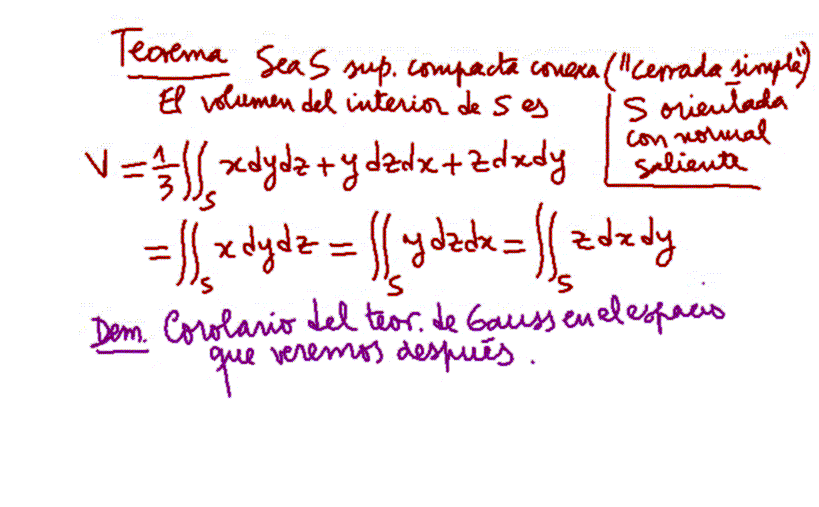 Teorema Sea S sup. compacta conexa ("cerrada simple")
El volumen del interior de S es
S orientada
con normal
saliente
V = 1/3 ∬_S x dy dz + y dz dx + z dx dy
= ∬_S x dy dz = ∬_S y dz dx = ∬_S z dx dy
Dem. Corolario del teor. de Gauss en el espacio
que veremos después.